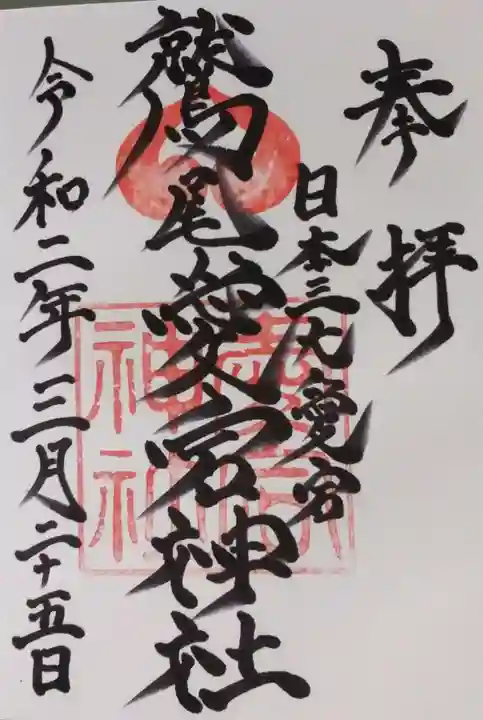 奉拝
日本三大愛宕
鷲尾愛宕神社
愛宕神社
令和二年三月二十五日